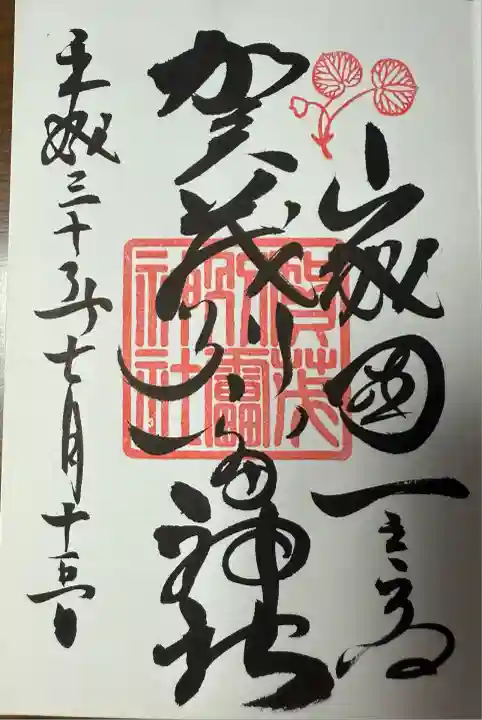 山城国一之宮
賀茂別雷神社
賀茂
別雷
神社
平成三十年七月十五日